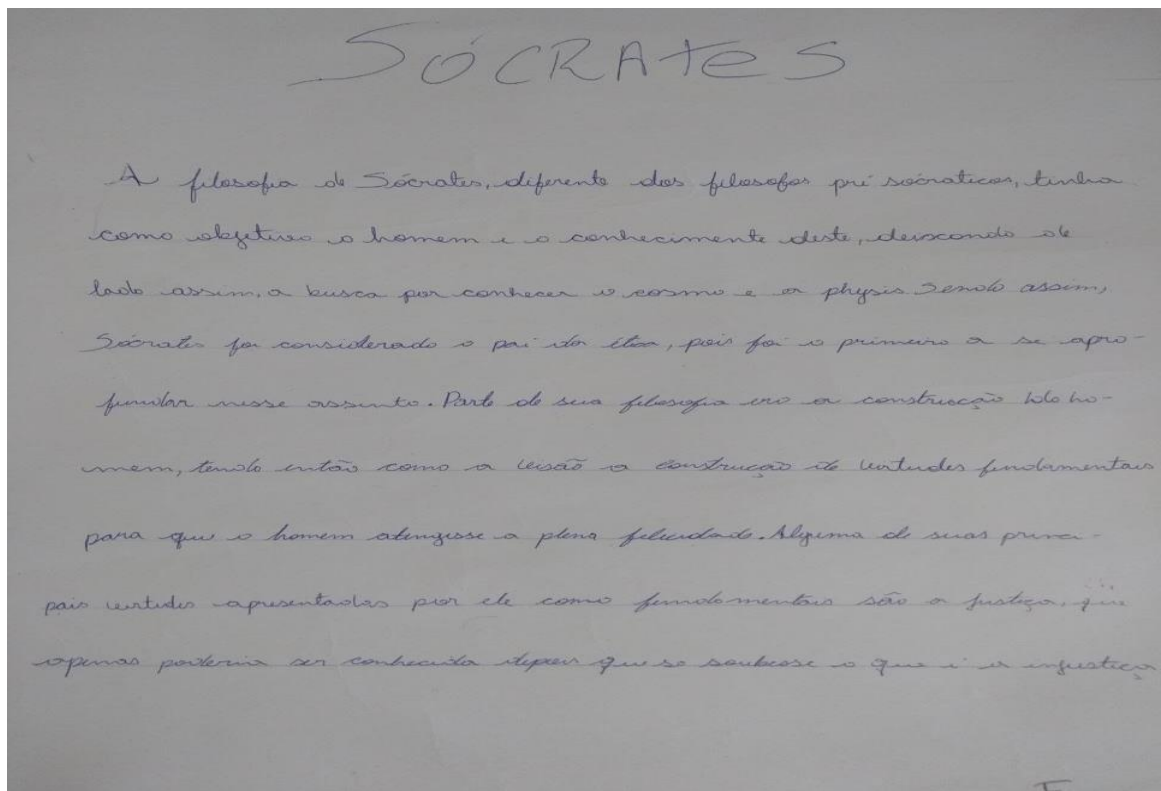 SÓCRAtes
A filosofia de Sócrates, diferente dos filosofos pré socraticos, tinha
como objetivo o homem e o conhecimento deste, deixando de
lado assim, a busca por conhecer o cosmo e a physis. Sendo assim,
Sócrates foi considerado o pai da ética, pois foi o primeiro a se apro-
fundar nesse assunto. Parte de sua filosofia era a construção do ho-
mem, tendo então como a visão a construção de virtudes fundamentais
para que o homem atingisse a plena felicidade. Alguma de suas princi-
pais virtudes apresentadas por ele como fundamentais são a justiça, que
apenas poderia ser conhecida depois que se soubesse o que é a injustiça